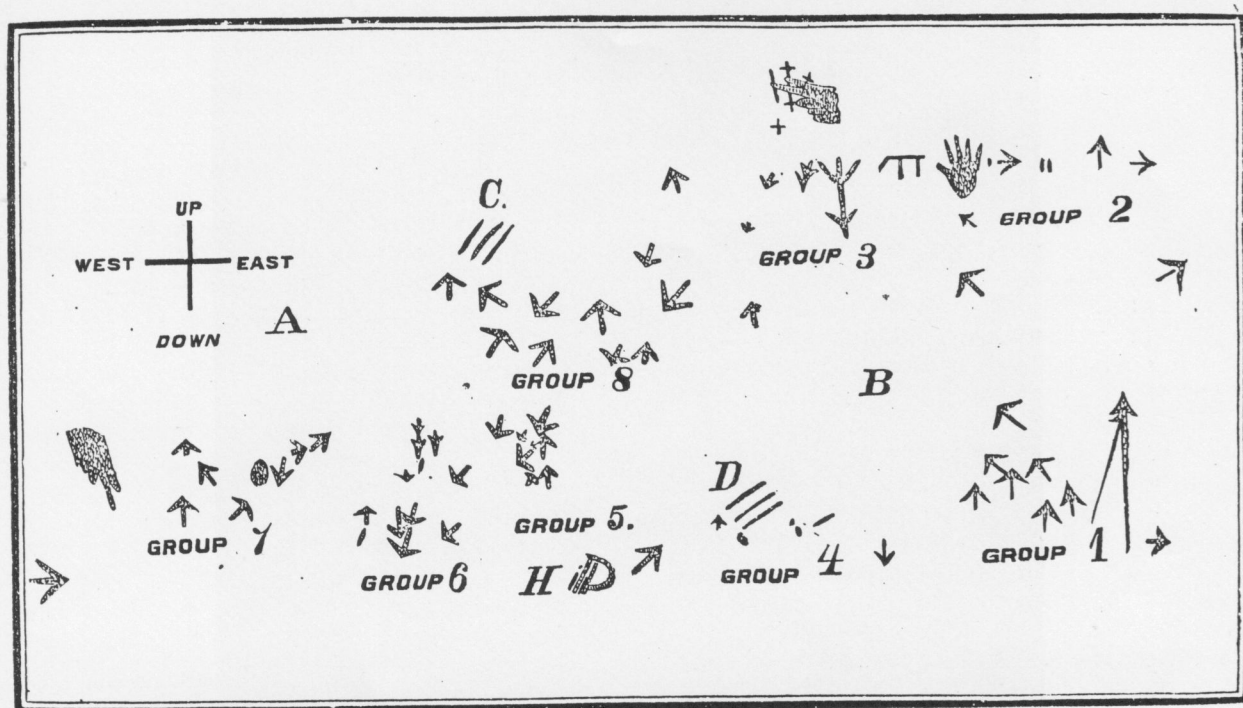 C.
UP
WEST EAST
A
DOWN
GROUP 2
GROUP 3
GROUP 8
B
D
GROUP 5.
GROUP 7
GROUP 6
H
GROUP 4
GROUP 1